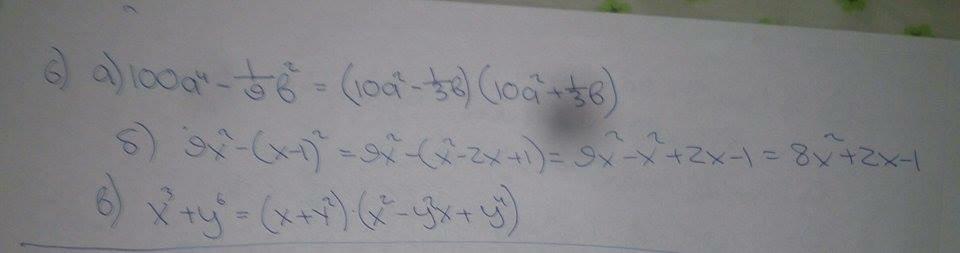 6) а) 100a⁴ - 1/9 b² = (10a² - 1/3 b)(10a² + 1/3 b)
б) 9x² - (x-1)² = 9x² - (x² - 2x + 1) = 9x² - x² + 2x - 1 = 8x² + 2x - 1
в) x³ + y⁶ = (x + y²)·(x² - y²x + y⁴)